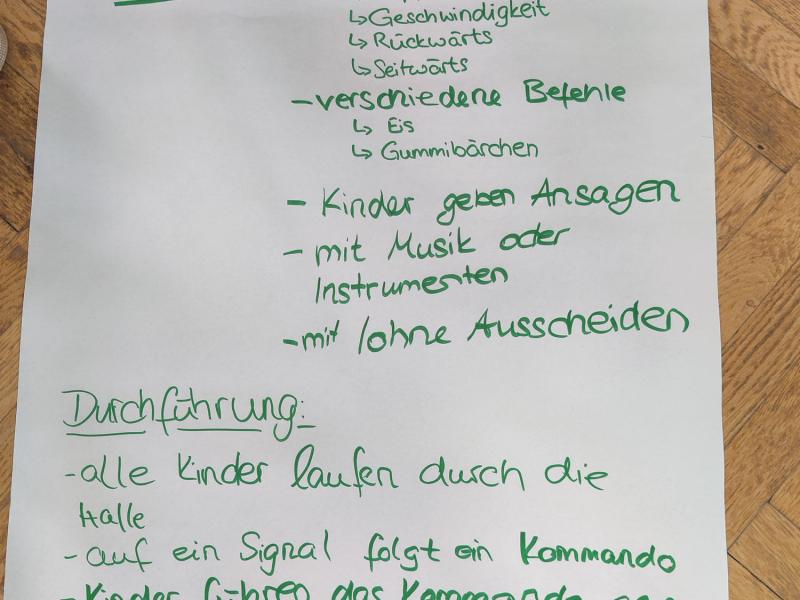 ↳ Geschwindigkeit
↳ Rückwärts
↳ Seitwärts
- verschiedene Befehle
↳ Eis
↳ Gummibärchen
- Kinder geben Ansagen
- mit Musik oder
Instrumenten
- mit /ohne Ausscheiden
Durchführung:
- alle Kinder laufen durch die
Halle
- auf ein Signal folgt ein Kommando
- Kinder führen das Kommando